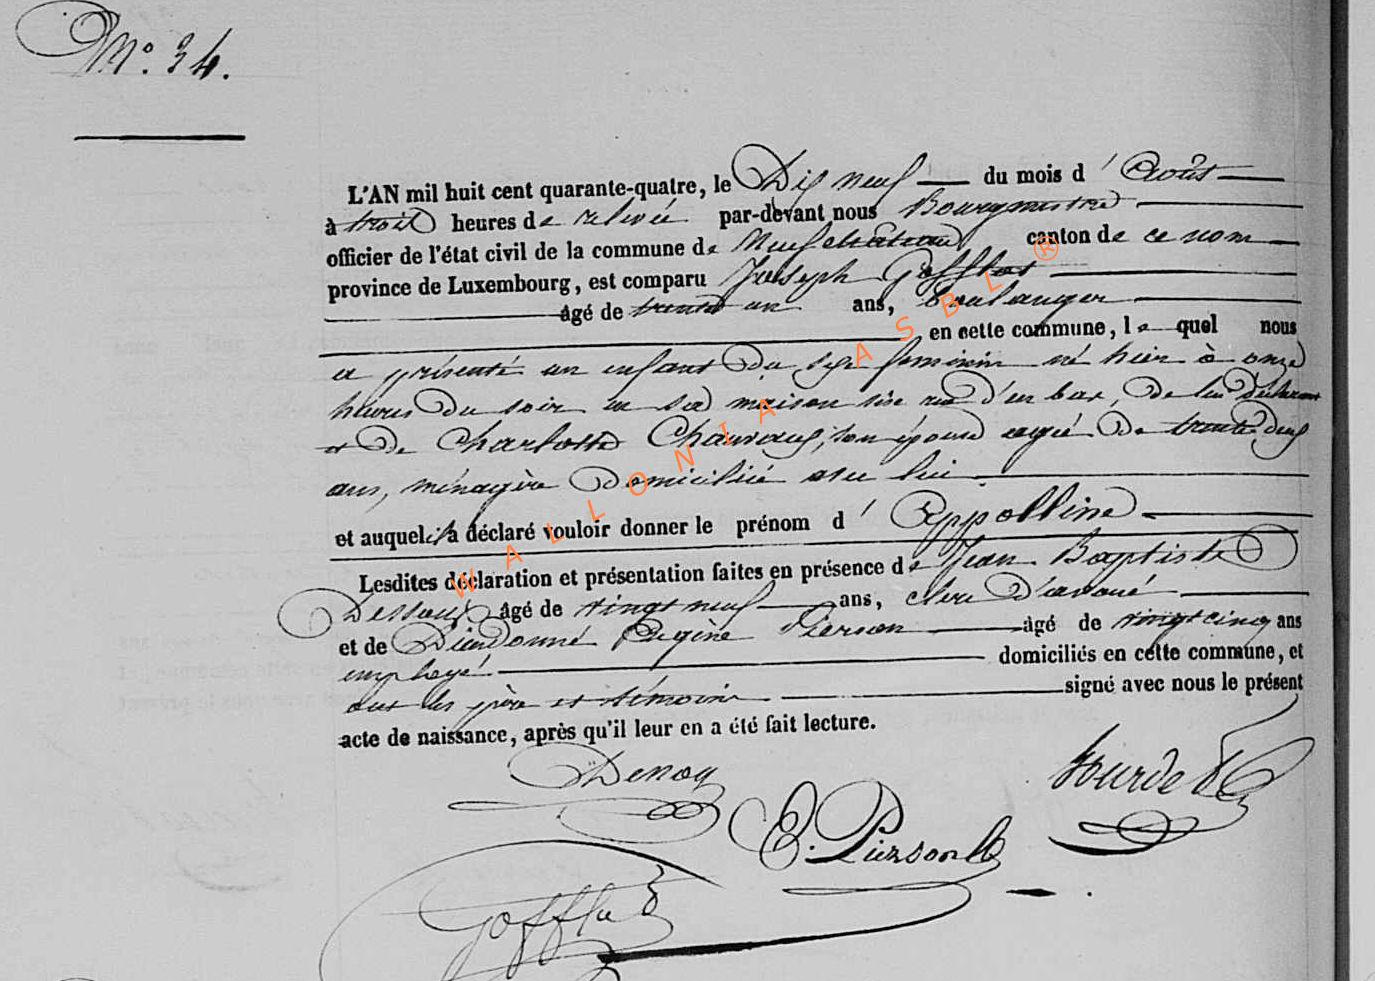 N.° 34.
L'AN mil huit cent quarante-quatre, le Dix neuf du mois d' Août
à trois heures de relevée par-devant nous Bourgmestre
officier de l'état civil de la commune de Neufchâteau canton de ce nom
province de Luxembourg, est comparu Joseph Gofflot
âgé de trente un ans, boulanger
en cette commune, le quel nous
a présenté un enfant du sexe feminin né hier à onze
heures du soir en sa maison sise rue d'en bas, de lui déclarant
et de Charlotte son épouse agée de trente deux
ans, ménagère domiciliée avec lui
et auquel il a déclaré vouloir donner le prénom d' Appolline
Lesdites déclaration et présentation faites en présence de Jean Baptiste
âgé de vingt neuf ans, clerc d'avoué
et de Dieudonné Eugène Pierson âgé de vingt cinq ans
employé domiciliés en cette commune, et
ont les père et témoins signé avec nous le présent
acte de naissance, après qu'il leur en a été fait lecture.
E. Pierson
WALLONIA ASBL ®